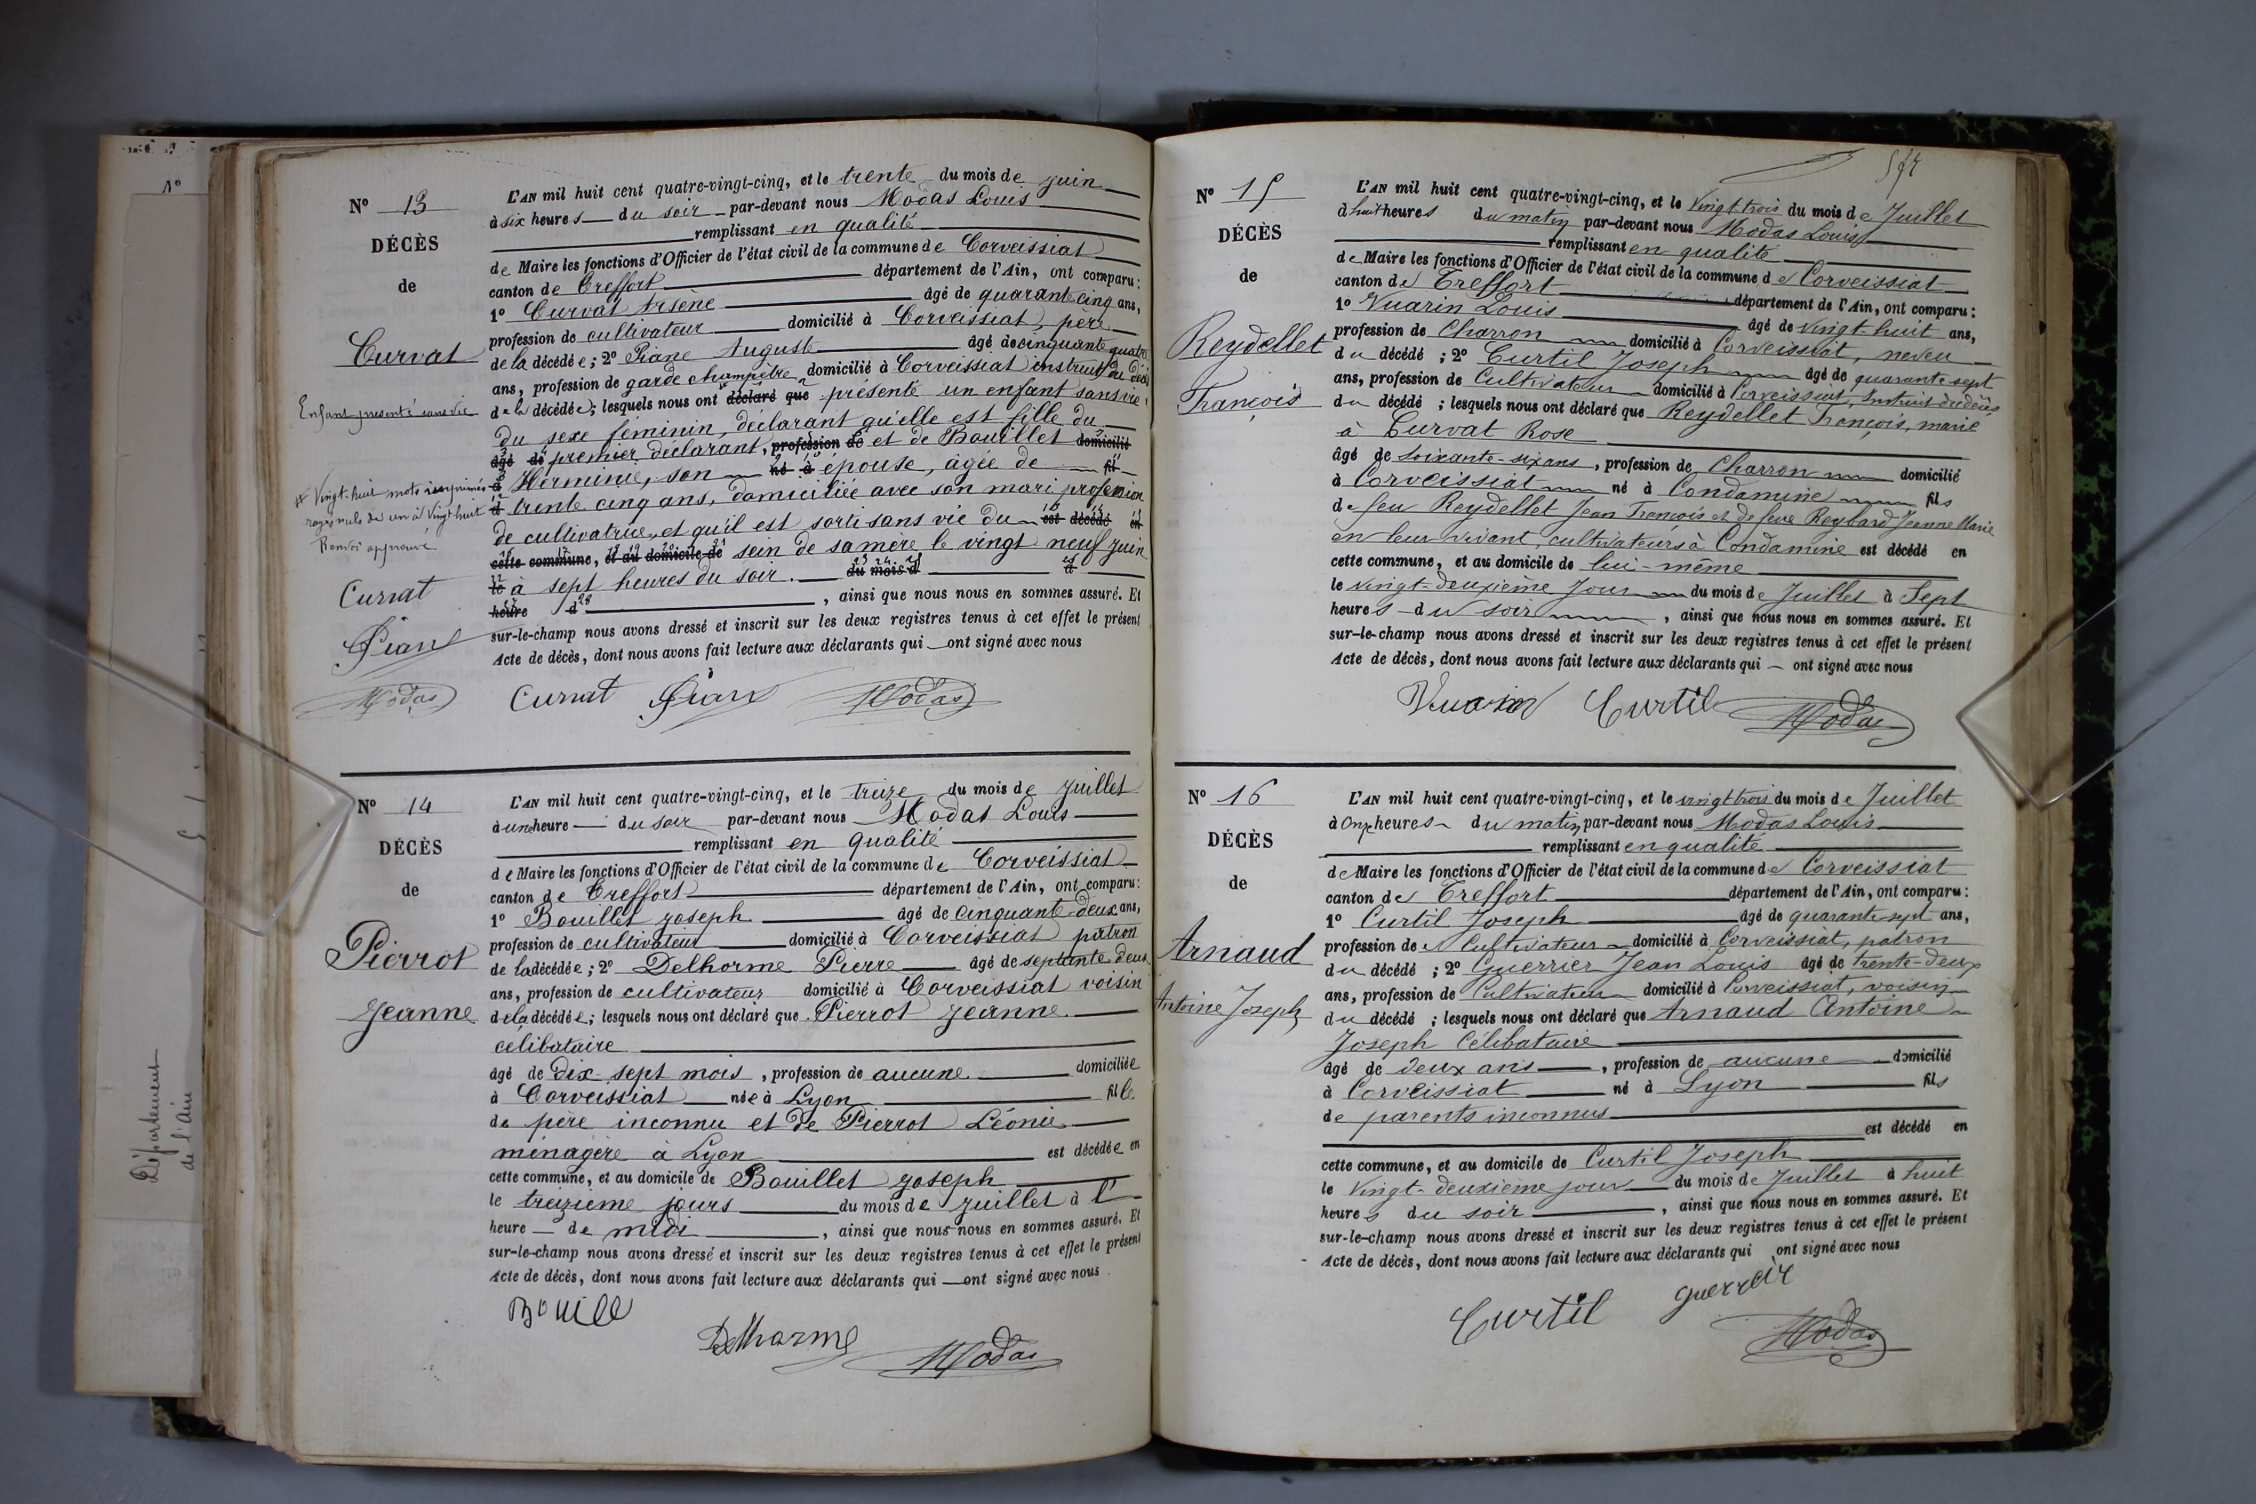 N° 13
DÉCÈS
de
Curvat
Enfant présenté sans vie
Vingt-huit mots imprimés
rayés nuls de un à vingt huit
Renvoi approuvé
Curvat
Pian
Modas
L'AN mil huit cent quatre-vingt-cinq, et le trente du mois de juin
à six heures du soir par-devant nous Modas Louis
remplissant en qualité
de Maire les fonctions d'Officier de l'état civil de la commune de Corveissiat
canton de Treffort département de l'Ain, ont comparu:
1° Curvat Arsène âgé de quarante cinq ans,
profession de cultivateur domicilié à Corveissiat, père
de la décédée; 2° Piane Auguste âgé de cinquante quatre
ans, profession de garde champêtre domicilié à Corveissiat instruit du décès
de la décédée; lesquels nous ont déclaré que présenté un enfant sans vie
du sexe féminin, déclarant qu'elle est fille du
âgé de premier déclarant, profession de et de Bouillet domicilié
à Herminie, son né à épouse, âgée de fil
d trente cinq ans, domiciliée avec son mari profession
de cultivatrice, et qu'il est sorti sans vie du est décédé en
cette commune, et au domicile de sein de sa mère le vingt neuf juin
le à sept heures du soir. du mois d à
heure d , ainsi que nous nous en sommes assuré. Et
sur-le-champ nous avons dressé et inscrit sur les deux registres tenus à cet effet le présent
Acte de décès, dont nous avons fait lecture aux déclarants qui ont signé avec nous
Curvat Pian Modas
N° 14
DÉCÈS
de
Pierrot
Jeanne
L'AN mil huit cent quatre-vingt-cinq, et le treize du mois de juillet
à une heure du soir par-devant nous Modas Louis
remplissant en qualité
de Maire les fonctions d'Officier de l'état civil de la commune de Corveissiat
canton de Treffort département de l'Ain, ont comparu:
1° Bouillet Joseph âgé de cinquante-deux ans,
profession de cultivateur domicilié à Corveissiat patron
de la décédée; 2° Delhorme Pierre âgé de septante deux
ans, profession de cultivateur domicilié à Corveissiat voisin
de la décédée; lesquels nous ont déclaré que Pierrot Jeanne
célibataire
âgé de dix-sept mois, profession de aucune domiciliée
à Corveissiat née à Lyon fille
de père inconnu et de Pierrot Léonie
ménagère à Lyon est décédée en
cette commune, et au domicile de Bouillet Joseph
le treizième jours du mois de juillet à l'
heure de midi, ainsi que nous nous en sommes assuré. Et
sur-le-champ nous avons dressé et inscrit sur les deux registres tenus à cet effet le présent
Acte de décès, dont nous avons fait lecture aux déclarants qui ont signé avec nous.
Bouill
Delhorme Modas
Département
de l'Ain
N° 15
DÉCÈS
de
Reydellet
François
L'AN mil huit cent quatre-vingt-cinq, et le Vingt trois du mois de Juillet
à huit heures du matin par-devant nous Modas Louis
remplissant en qualité
de Maire les fonctions d'Officier de l'état civil de la commune de Corveissiat
canton de Treffort département de l'Ain, ont comparu:
1° Vuarin Louis âgé de vingt-huit ans,
profession de Charron domicilié à Corveissiat, neveu
du décédé; 2° Curtil Joseph âgé de quarante sept
ans, profession de Cultivateur domicilié à Corveissiat, Instruit du décès
du décédé; lesquels nous ont déclaré que Reydellet François, marié
à Curvat Rose
âgé de soixante-six ans, profession de Charron domicilié
à Corveissiat né à Condamine fils
de feu Reydellet Jean François et de feue Reybard Jeanne Marie
en leur vivant, cultivateurs à Condamine est décédé en
cette commune, et au domicile de lui-même
le vingt-deuxième Jour du mois de Juillet à Sept
heures du soir, ainsi que nous nous en sommes assuré. Et
sur-le-champ nous avons dressé et inscrit sur les deux registres tenus à cet effet le présent
Acte de décès, dont nous avons fait lecture aux déclarants qui ont signé avec nous
Vuarin Curtil Modas
N° 16
DÉCÈS
de
Arnaud
Antoine Joseph
L'AN mil huit cent quatre-vingt-cinq, et le vingt trois du mois de Juillet
à Onze heures du matin par-devant nous Modas Louis
remplissant en qualité
de Maire les fonctions d'Officier de l'état civil de la commune de Corveissiat
canton de Treffort département de l'Ain, ont comparu:
1° Curtil Joseph âgé de quarante sept ans,
profession de Cultivateur domicilié à Corveissiat, patron
du décédé; 2° Guerrier Jean Louis âgé de trente-deux
ans, profession de Cultivateur domicilié à Corveissiat, voisin
du décédé; lesquels nous ont déclaré que Arnaud Antoine
Joseph Célibataire
âgé de deux ans, profession de aucune domicilié
à Corveissiat né à Lyon fils
de parents inconnus
est décédé en
cette commune, et au domicile de Curtil Joseph
le Vingt-deuxième jour du mois de Juillet à huit
heures du soir, ainsi que nous nous en sommes assuré. Et
sur-le-champ nous avons dressé et inscrit sur les deux registres tenus à cet effet le présent
Acte de décès, dont nous avons fait lecture aux déclarants qui ont signé avec nous
Curtil Guerrier
Modas